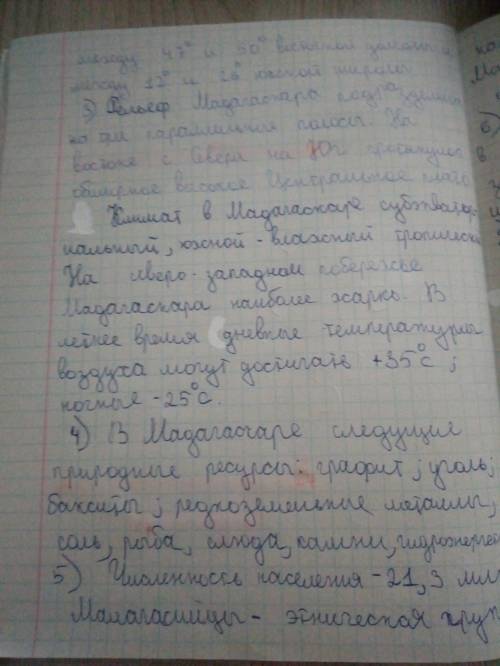 между 47° и 50° восточной долготы и
между 12° и 26° южной широты
3) Рельеф Мадагаскара подразделяют
на три параллельные полосы. На
востоке с Севера на Юг протянулось
обширное высокое Центральное плато
Климат в Мадагаскаре субэкватор-
иальный, южной - влажный тропически
На северо-западном побережье
Мадагаскара наиболее жарко. В
летнее время дневные температуры
воздуха могут достигать +35°С ;
ночные -25°С.
4) В Мадагаскаре следущие
природные ресурсы: графит, уголь;
бокситы; редкоземельные металлы,
соль, рыба, слюда, камни, гидроэнергет
5) Численность населения - 21,3 мил
Малагасийцы - этническая груп